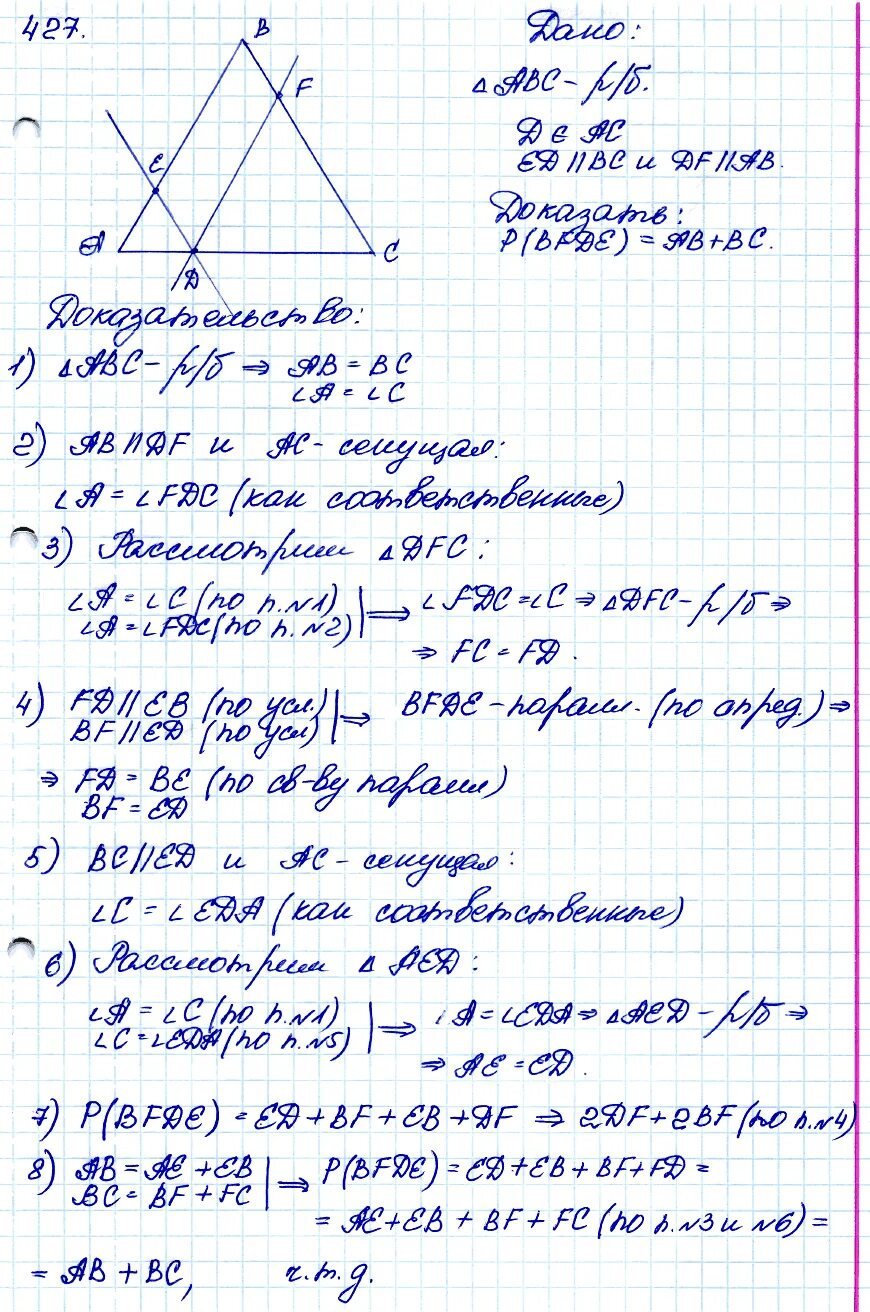 427.
B
F
E
A
D
C
Дано:
△ABC – р/б.
D ∈ AC
ED ∥ BC и DF ∥ AB.
Доказать:
P(BFDE) = AB+BC.
Доказательство:
1) △ABC – р/б ⇒ AB = BC
∠A = ∠C
2) AB ∥ DF и AC – секущая:
∠A = ∠FDC (как соответственные)
3) Рассмотрим △DFC:
∠A = ∠C (по п.№1) | ⇒ ∠FDC = ∠C ⇒ △DFC – р/б ⇒
∠A = ∠FDC (по п.№2)
⇒ FC = FD.
4) FD ∥ EB (по усл.) | ⇒ BFDE – паралл. (по опред.) ⇒
BF ∥ ED (по усл)
⇒ FD = BE (по св-ву паралл)
BF = ED
5) BC ∥ ED и AC – секущая:
∠C = ∠EDA (как соответственные)
6) Рассмотрим △ AED:
∠A = ∠C (по п.№1) | ⇒ ∠A = ∠EDA ⇒ △AED – р/б ⇒
∠C = ∠EDA (по п.№5)
⇒ AE = ED.
7) P(BFDE) = ED + BF + EB + DF ⇒ 2DF + 2BF (по п.№4)
8) AB = AE + EB | ⇒ P(BFDE) = ED + EB + BF + FD =
BC = BF + FC
= AE + EB + BF + FC (по п.№3 и №6) =
= AB + BC, ч.т.д.